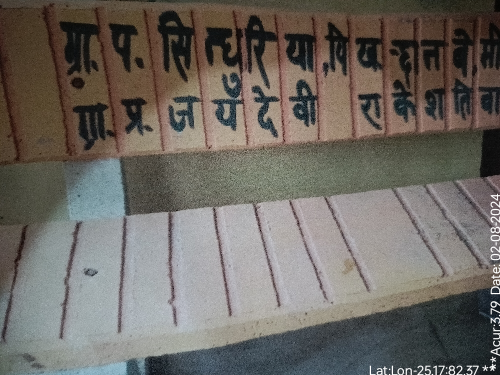 ग्रा. प. सिन्धुरिया, पि ख-दान बे, मी
ग्रा. प्र. जयदेवी राकेश तिवा
Lat:Lon-2517:82.37 *** Acur:3.79 Date: 02-08-2024